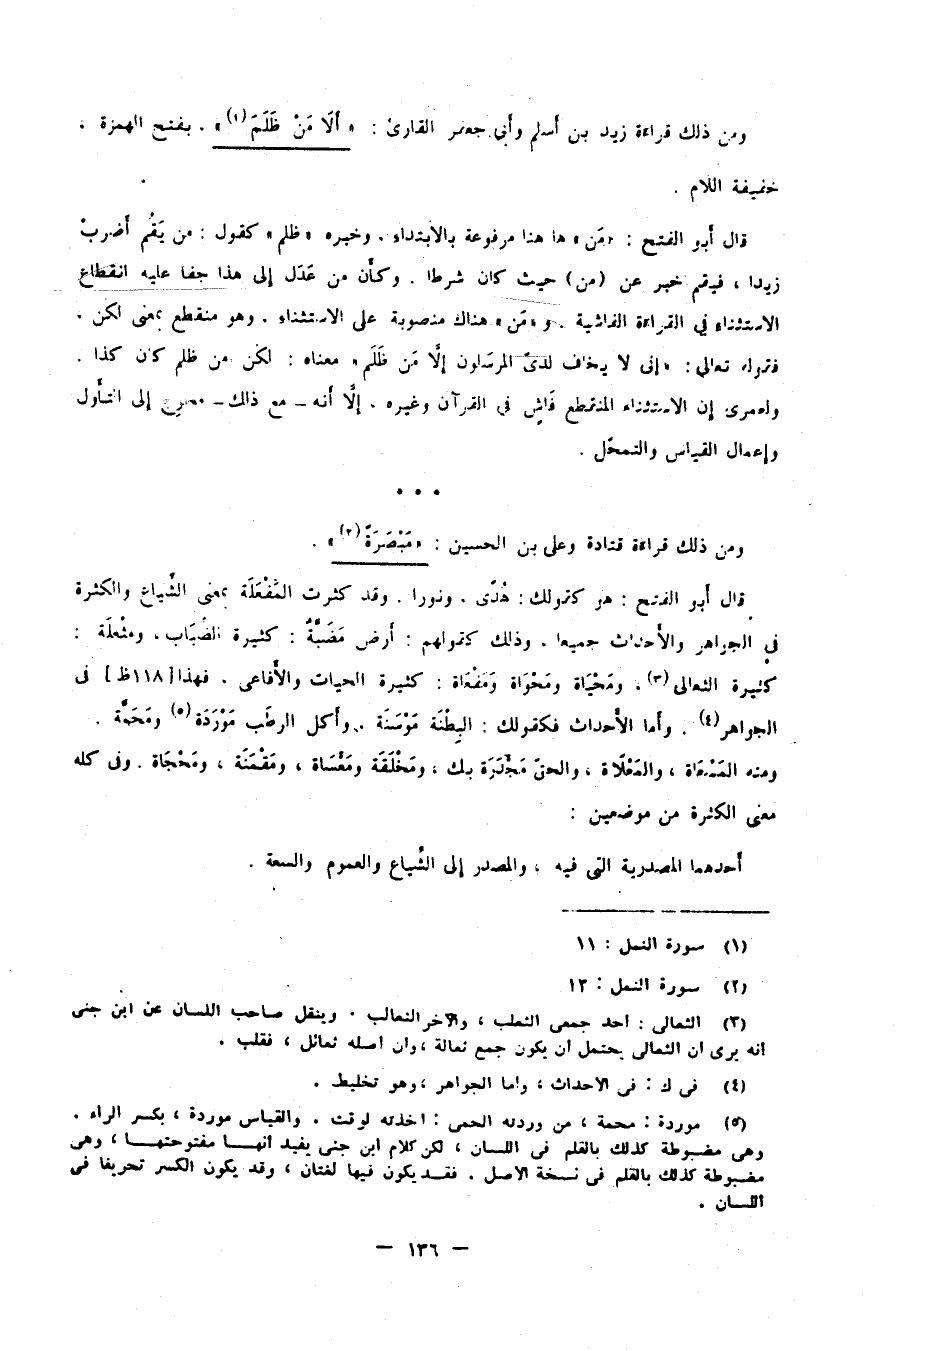 ومن ذلك قراءة زيد بن أسلم وأبي جعفر القارئ : « أَلَا مَنْ ظَلَمَ(١) » . بفتح الهمزة .
خفيفة اللام .
قال أبو الفتح : «مَن» ها هنا مرفوعة بالابتداء . وخبره «ظلم» كقول : من يَقُم أضربْ
زيدا ، فيقم خبر عن (من) حيث كان شرطا . وكأن من عَدَل إلى هذا جفا عليه انقطاع
الاستثناء في القراءة الفاشية . و «مَن» هناك منصوبة على الاستثناء . وهو منقطع بمعنى لكن .
فقوله تعالى : «إنى لا يخاف لدىّ المرسلون إلَّا مَن ظَلَم» معناه : لكن من ظلم كان كذا .
ولعمرى إن الاستثناء المنقطع فَاشٍ في القرآن وغيره . إلَّا أنه - مع ذلك - محوج إلى التأول
وإعمال القياس والتمحّل .
• • •
ومن ذلك قراءة قتادة وعلى بن الحسين : «مَبْصَرَةً(٢)» .
قال أبو الفتح : هو كقولك : هُدًى . ونورا . وقد كثرت المَفْعَلَة بمعنى الشَّياع والكثرة
في الجواهر والأحداث جميعا . وذلك كقولهم : أرض مَضَبَّةٌ : كثيرة الضِّباب . ومثْعلَة :
كثيرة الثعالى(٣) . ومَحْيَاة ومَحْوَاة ومَفْعَاة : كثيرة الحيات والأفاعى . فهذا [١١٨ظ] فى
الجواهر(٤) . وأما الأحداث فكقولك : البِطْنَة مَوْسَنَة . وأكل الرطَب مَوْرَدَة(٥) ومَحَمَّة .
ومنه المَسْعَاة ، والمَعْلَاة ، والحقّ مَجْدَرَة بك ، ومَخْلَقَة ومَعْسَاة ، ومَقْمَنَة ، ومَحْجَاة . وفى كله
معنى الكثرة من موضعين :
أحدهما المصدرية التى فيه ، والمصدر إلى الشَّياع والعموم والسعة .
(١) سورة النمل : ١١
(٢) سورة النمل : ١٣
(٣) الثعالى : أحد جمعى الثعلب ، والآخر الثعالب . وينقل صاحب اللسان عن ابن جنى
أنه يرى أن الثعالى يحتمل أن يكون جمع ثعالة ، وأن أصله ثعائل ، فقلب .
(٤) فى ك : فى الأحداث ، وأما الجواهر ، وهو تخليط .
(٥) موردة : محمة ، من وردته الحمى : أخذته لوقت . والقياس موردة ، بكسر الراء .
وهى مضبوطة كذلك بالقلم فى اللسان ، لكن كلام ابن جنى يفيد أنها مفتوحتها ، وهى
مضبوطة كذلك بالقلم فى نسخة الأصل . فقد يكون فيها لغتان ، وقد يكون الكسر تحريفا فى
اللسان .
— ١٣٦ —